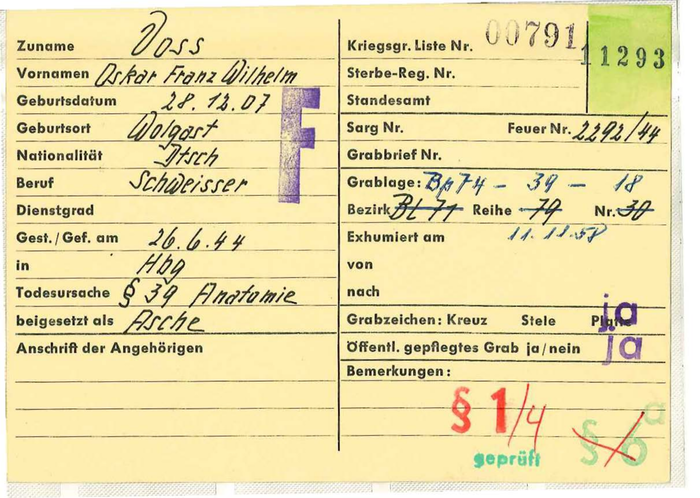 Zuname Voss
Vornamen Oskar Franz Wilhelm
Geburtsdatum 28.12.07
Geburtsort Wolgast
Nationalität Dtsch
Beruf Schweisser
Dienstgrad
Gest./Gef. am 26.6.44
in Hbg
Todesursache § 39 Anatomie
beigesetzt als Asche
Anschrift der Angehörigen
F
Kriegsgr. Liste Nr. 00791
11293
Sterbe-Reg. Nr.
Standesamt
Sarg Nr. Feuer Nr. 2292/44
Grabbrief Nr.
Grablage: Bp74 - 39 - 18
Bezirk Bl 71 Reihe 79 Nr. 30
Exhumiert am 11.11.58
von
nach
Grabzeichen: Kreuz Stele Platte ja
Öffentl. gepflegtes Grab ja/nein ja
Bemerkungen:
§ 1/4
geprüft
§ 6a